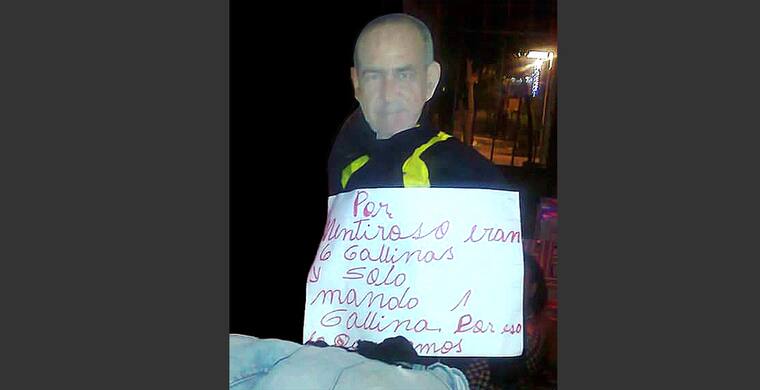 Por
Mentiroso eran
6 Gallinas
y Solo
mando 1
Gallina. Por eso
lo